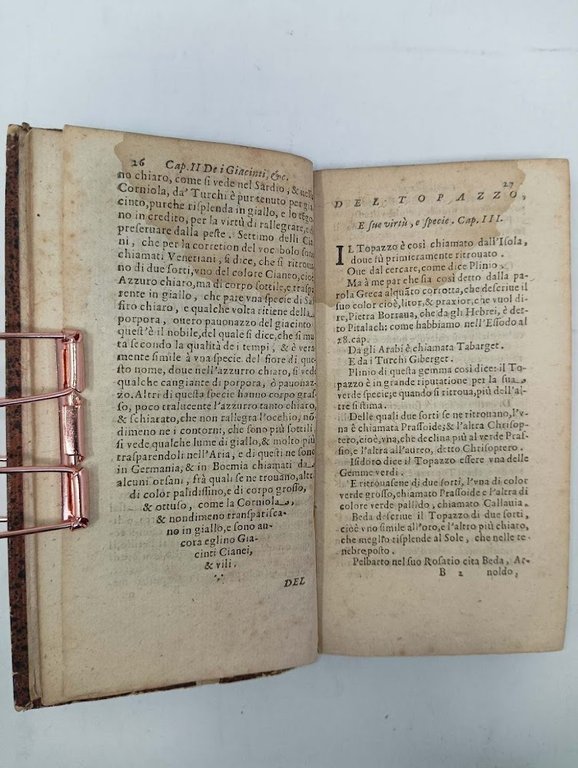 26 Cap. II De i Giacinti, &c.
no chiaro, come si vede nel Sardio, & nella
Corniola, da' Turchi è pur tenuto per gia
cinto, purche risplenda in giallo, e lo
no in credito, per la virtù di rallegrare, e di
preseruare dalla peste. Settimo delli Cia
ni, che per la corretion del voc bolo sono
chiamati Venetiani, si dice, che si ritroua
no di due sorti, vno del colore Cianeo, cioè
Azzuro chiaro, ma di corpo sottile, e traspa
rente in giallo, che pare vna specie di Sa
firo chiaro, e qualche volta ritiene della
porpora, ouero pauonazzo del giacinto
quest'è il nobile, del quale si dice, che si mu
ta secondo la qualità de i tempi, & è vera
mente simile à vna specie del fiore di que
sto nome, doue nell'azzurro chiaro, si vede
qualche cangiante di porpora, ò pauonaz
zo. Altri di questa specie hanno corpo gras
so, poco tralucente l'azzurro tanto chiaro,
& schiatato, che non rallegra l'occhio, non
dimeno ne i contorni, che sono più sottili,
si vede qualche lume di giallo, & molto più
trasparendoli nell'Aria, e di questi ne sono
in Germania, & in Boemia chiamati da
alcuni orsani, frà quali se ne trouano, altri
di color palidissino, e di corpo grosso,
& ottuso, come la Corniola,
& nondimeno transparisca-
no in giallo, e sono an-
cora eglino Gia-
cinti Cianei,
& vili.
DEL
27
DEL TOPAZZO,
E sue virtù, e specie. Cap. III.
IL Topazzo è così chiamato dall'Isola,
doue fù primieramente ritrouato.
Oue dal cercare, come dice Plinio.
Ma à me par che sia così detto dalla pa-
rola Greca alquãto corrotta, che descriue il
suo color cioè, litor, & praxior, che vuol di-
re, Pietra Borraua, che da gli Hebrei, è det-
to Pitalach: come habbiamo nell'Essodo al
28. cap.
Da gli Arabi è chiamato Tabarget.
E da i Turchi Giberget.
Plinio di questa gemma così dice: il To
pazzo è in grande riputatione per la sua
verde specie; e quando si ritroua, più dell'al
tre si stima.
Delle quali due sorti se ne ritrouano, l'v-
na è chiamata Prassoide; & l'altra Chrisop-
tero, cioè, vna, che declina più al verde Pras-
sio, e l'altra all'aureo, detto Chrisoptero.
Isidoro dice il Topazzo essere vna delle
Gemme verdi.
E ritrouasene di due sorti, l'vna di color
verde grosso, chiamato Prassoide e l'altra di
colore verde palido, chiamato Callauia.
Beda descriue il Topazzo di due sorti,
cioè vno simile all'oro, e l'altro più chiaro,
che meglio risplende al Sole, che nelle te
nebre posto.
Pelbarto nel suo Rosario cita Beda, Ar-
B 2 noldo,